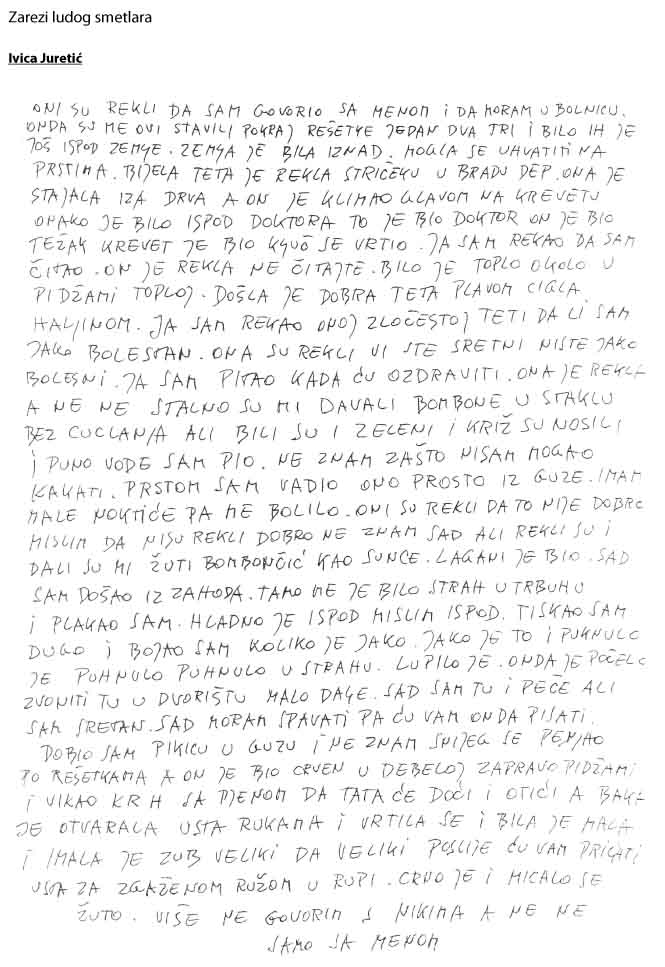 Zarezi ludog smetlara
Ivica Juretić
ONI SU REKLI DA SAM GOVORIO SA MENOM I DA MORAM U BOLNICU.
ONDA SU ME OVI STAVILI POKRAJ REŠETKE JEDAN DVA TRI I BILO IH JE
JOŠ ISPOD ZEMJE. ZEMJA JE BILA IZNAD. MOGLA SE UHVATITI NA
PRSTIMA. BIJELA TETA JE REKLA STRIČEKU U BRADU DEP. ONA JE
STAJALA IZA DRVA A ON JE KLIMAO GLAVOM NA KREVETU
ONAKO JE BILO ISPOD DOKTORA TO JE BIO DOKTOR ON JE BIO
TEŽAK KREVET JE BIO KJUČ SE VRTIO. JA SAM REKAO DA SAM
ČITAO. ON JE REKLA NE ČITAJTE. BILO JE TOPLO OKOLO U
PIDŽAMI TOPLOJ. DOŠLA JE DOBRA TETA PLAVOM CIGLA
HALJINOM. JA SAM REKAO ONOJ ZLOČESTOJ TETI DA LI SAM
JAKO BOLESTAN. ONA SU REKLI VI STE SRETNI NISTE JAKO
BOLESNI. JA SAM PITAO KADA ĆU OZDRAVITI. ONA JE REKLA
A NE NE STALNO SU MI DAVALI BOMBONE U STAKLU
BEZ CUCLANJA ALI BILI SU I ZELENI I KRIŽ SU NOSILI
I PUNO VODE SAM PIO. NE ZNAM ZAŠTO NISAM MOGAO
KAKATI. PRSTOM SAM VADIO ONO PROSTO IZ GUZE. IMAM
MALE NOKTIĆE PA ME BOLILO. ONI SU REKLI DA TO NIJE DOBRO
MISLIM DA NISU REKLI DOBRO NE ZNAM SAD ALI REKLI SU I
DALI SU MI ŽUTI BOMBONČIĆ KAO SUNCE. LAGANI JE BIO. SAD
SAM DOŠAO IZ ZAHODA. TAMO ME JE BILO STRAH U TRBUHU
I PLAKAO SAM. HLADNO JE ISPOD MISLIM ISPOD. TISKAO SAM
DUGO I BOJAO SAM KOLIKO JE JAKO. JAKO JE TO I PUKNULO
JE PUHNULO PUHNULO U STRAHU. LUPILO JE. ONDA JE POČELO
ZVONITI TU U DVORIŠTU MALO DAJE. SAD SAM TU I PEČE ALI
SAM SRETAN. SAD MORAM SPAVATI PA ĆU VAM ONDA PISATI.
DOBIO SAM PIKICU U GUZU I NE ZNAM SNIJEG SE PENJAO
PO REŠETKAMA A ON JE BIO CRVEN U DEBELOJ ZAPRAVO PIDŽAMI
I VIKAO KRH SA PJENOM DA TATA ĆE DOĆI I OTIĆI A BAKA
JE OTVARALA USTA RUKAMA I VRTILA SE I BILA JE MALA
I IMALA JE ZUB VELIKI DA VELIKI POSLIJE ĆU VAM PRIČATI
USTA ZA ZGAŽENOM RUŽOM U RUPI. CRNO JE I MICALO SE
ŽUTO. VIŠE NE GOVORIM S NIKIMA A NE NE
SAMO SA MENOM